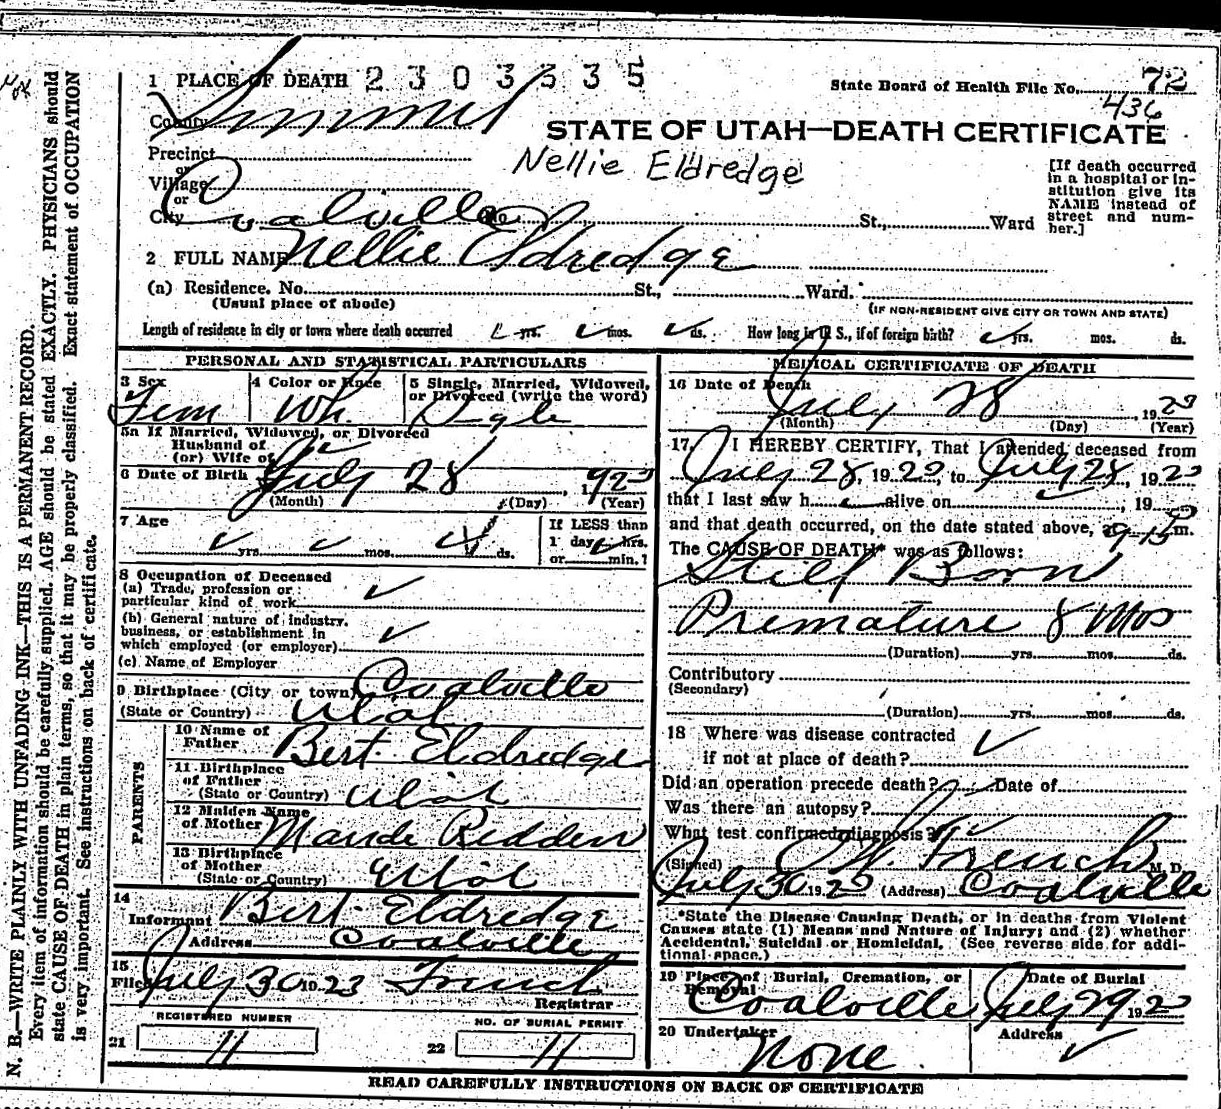 1 PLACE OF DEATH 2303335
State Board of Health File No. 72
436
County Summit
STATE OF UTAH—DEATH CERTIFICATE
Precinct
Nellie Eldredge
or
Village
or
City Coalville No. St., Ward
[If death occurred
in a hospital or in-
stitution give its
NAME instead of
street and num-
ber.]
2 FULL NAME Nellie Eldredge
(a) Residence. No. St., Ward.
(Usual place of abode)
(IF NON-RESIDENT GIVE CITY OR TOWN AND STATE)
Length of residence in city or town where death occurred ✓ yrs. ✓ mos. ✓ ds. How long in U S., if of foreign birth? ✓ yrs. mos. ds.
PERSONAL AND STATISTICAL PARTICULARS
3 Sex 4 Color or Race 5 Single, Married, Widowed,
or Divorced (write the word)
Fem Wh Sgle
5a If Married, Widowed, or Divorced
Husband of
(or) Wife of ✓
6 Date of Birth July 28, 1923
(Month) (Day) (Year)
7 Age
✓ yrs. ✓ mos. ds.
If LESS than
1 day ✓ hrs.
or min.?
8 Occupation of Deceased
(a) Trade, profession or
particular kind of work ✓
(b) General nature of industry,
business, or establishment in
which employed (or employer) ✓
(c) Name of Employer
9 Birthplace (City or town) Coalville
(State or Country) Utah
PARENTS
10 Name of
Father Bert Eldredge
11 Birthplace
of Father
(State or Country) Utah
12 Maiden Name
of Mother Maude Redden
13 Birthplace
of Mother
(State or Country) Utah
14
Informant Bert Eldredge
Address Coalville
15
Filed July 30 1923 French
Registrar
REGISTERED NUMBER
21 11
NO. OF BURIAL PERMIT
22 11
MEDICAL CERTIFICATE OF DEATH
16 Date of Death
July 28, 1923
(Month) (Day) (Year)
17. I HEREBY CERTIFY, That I attended deceased from
July 28, 1923, to July 28, 1923
that I last saw h alive on ✓, 19
and that death occurred, on the date stated above, at 9 15 m.
The CAUSE OF DEATH* was as follows:
Still Born
Premature 8 Mos
(Duration) yrs. mos. ds.
Contributory
(Secondary)
(Duration) yrs. mos. ds.
18 Where was disease contracted
if not at place of death? ✓
Did an operation precede death? Date of
Was there an autopsy?
What test confirmed diagnosis?
(Signed) French M. D.
July 30 1923 (Address) Coalville
*State the Disease Causing Death, or in deaths from Violent
Causes state (1) Means and Nature of Injury; and (2) whether
Accidental, Suicidal or Homicidal. (See reverse side for addi-
tional space.)
19 Place of Burial, Cremation, or
Removal Coalville
Date of Burial
July 29, 1923
20 Undertaker
None
Address
✓
READ CAREFULLY INSTRUCTIONS ON BACK OF CERTIFICATE
N. B.—WRITE PLAINLY WITH UNFADING INK—THIS IS A PERMANENT RECORD.
Every item of information should be carefully supplied. AGE should be stated EXACTLY. PHYSICIANS should
state CAUSE OF DEATH in plain terms, so that it may be properly classified. Exact statement of OCCUPATION
is very important. See instructions on back of certificate.